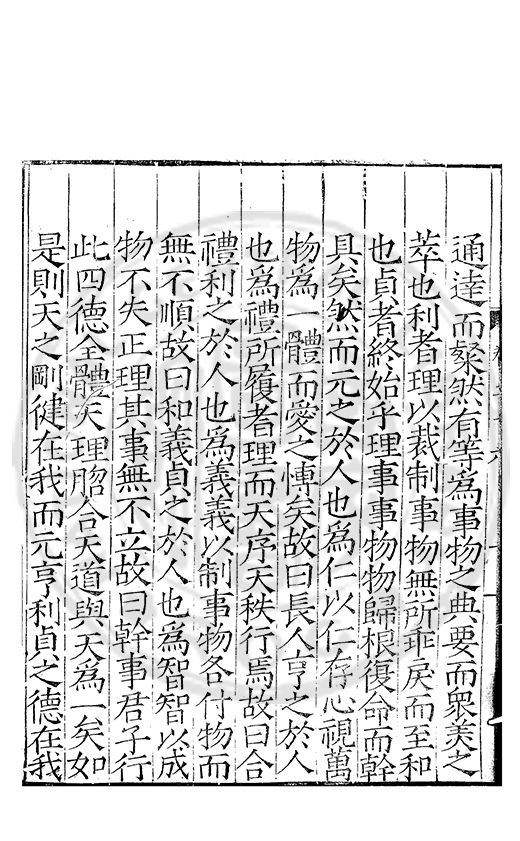 通達而粲然有等爲事物之典要而衆美之
萃也利者理以裁制事物無所乖戾而至和
也貞者終始乎理事事物物歸根復命而幹
具矣然而元之於人也爲仁以仁存心視萬
物爲一體而愛之愽矣故曰長人亨之於人
也爲禮所履者理而天序天秩行焉故曰合
禮利之於人也爲義義以制事物各付物而
無不順故曰和義貞之於人也爲智智以成
物不失正理其事無不立故曰幹事君子行
此四德全體矣理脗合天道與天爲一矣如
是則天之剛健在我而元亨利貞之德在我